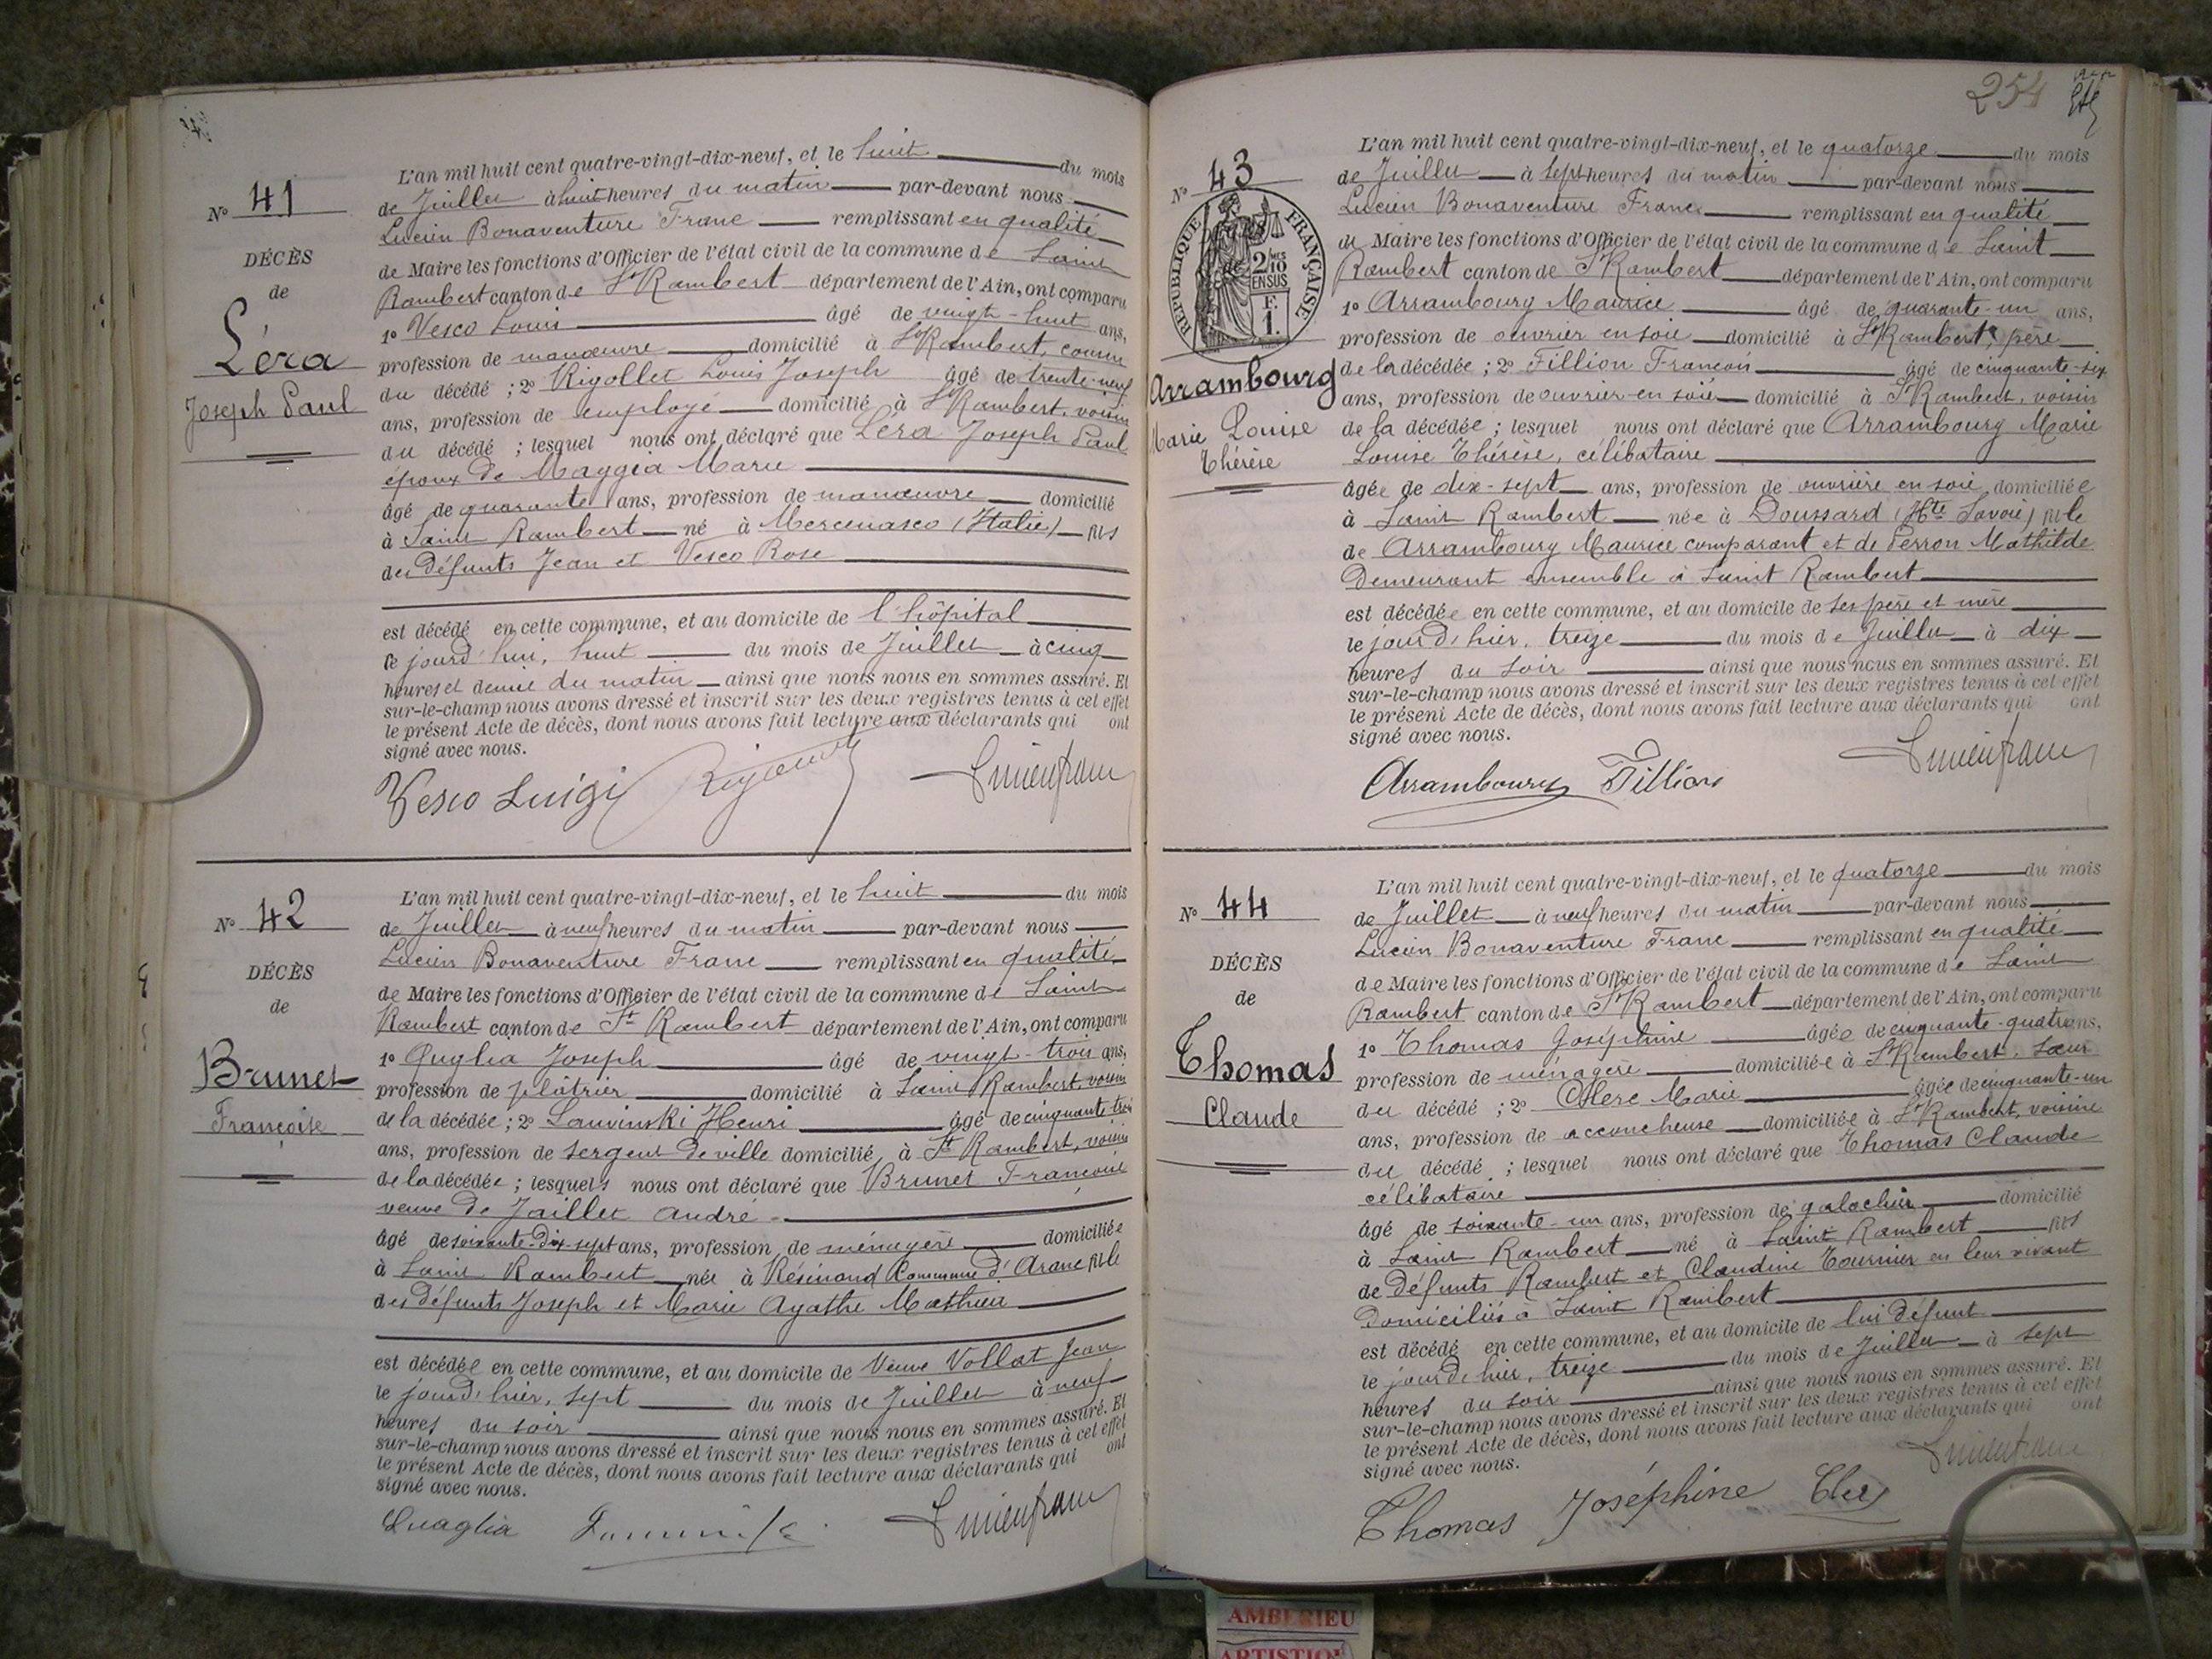 No 41
DÉCÈS
de
Léra
Joseph Paul
L'an mil huit cent quatre-vingt-dix-neuf, et le huit du mois
de Juillet à huit heures du matin par-devant nous
Lucien Bonaventure Franc remplissant en qualité
de Maire les fonctions d'Officier de l'état civil de la commune de Saint
Rambert canton de St Rambert département de l'Ain, ont comparu
1º Vesco Louis âgé de vingt-huit ans,
profession de manœuvre domicilié à St Rambert, cousin
du décédé ; 2º Rigollet Louis Joseph âgé de trente-neuf
ans, profession de employé domicilié à St Rambert, voisin
du décédé ; lesquel nous ont déclaré que Léra Joseph Paul
époux de Maggia Marie
âgé de quarante ans, profession de manœuvre domicilié
à Saint Rambert né à Mercenasco (Italie) fils
des défunts Jean et Vesco Rose
est décédé en cette commune, et au domicile de l'hôpital
le jourd'hui, huit du mois de Juillet à cinq
heures et demie du matin ainsi que nous nous en sommes assuré. Et
sur-le-champ nous avons dressé et inscrit sur les deux registres tenus à cet effet
le présent Acte de décès, dont nous avons fait lecture aux déclarants qui ont
signé avec nous.
Vesco Luigi
No 42
DÉCÈS
de
Brunet
Françoise
L'an mil huit cent quatre-vingt-dix-neuf, et le huit du mois
de Juillet à neuf heures du matin par-devant nous
Lucien Bonaventure Franc remplissant en qualité
de Maire les fonctions d'Officier de l'état civil de la commune de Saint
Rambert canton de St Rambert département de l'Ain, ont comparu
1º Quglia Joseph âgé de vingt-trois ans,
profession de plâtrier domicilié à Saint Rambert, voisin
de la décédée ; 2º Lauvinski Henri âgé de cinquante trois
ans, profession de sergent de ville domicilié à St Rambert, voisin
de la décédée ; lesquels nous ont déclaré que Brunet Françoise
veuve de Jaillet André
âgé de soixante-dix-sept ans, profession de ménagère domiciliée
à Saint Rambert née à Résinand Commune d'Aranc fille
des défunts Joseph et Marie Agathe Mathieu
est décédée en cette commune, et au domicile de Veuve Vollat Jean
le jour d'hier, sept du mois de Juillet à neuf
heures du soir ainsi que nous nous en sommes assuré. Et
sur-le-champ nous avons dressé et inscrit sur les deux registres tenus à cet effet
le présent Acte de décès, dont nous avons fait lecture aux déclarants qui ont
signé avec nous.
Quaglia
254
No 43
RÉPUBLIQUE FRANÇAISE
2 MES
10
EN SUS
F.
1.
Arrambourg
Marie Louise
Thérèse
L'an mil huit cent quatre-vingt-dix-neuf, et le quatorze du mois
de Juillet à sept heures du matin par-devant nous
Lucien Bonaventure Franc remplissant en qualité
de Maire les fonctions d'Officier de l'état civil de la commune de Saint
Rambert canton de St Rambert département de l'Ain, ont comparu
1º Arrambourg Maurice âgé de quarante-un ans,
profession de ouvrier en soie domicilié à St Rambert, père
de la décédée ; 2º Fillion François âgé de cinquante-six
ans, profession de ouvrier en soie domicilié à St Rambert, voisin
de la décédée ; lesquel nous ont déclaré que Arrambourg Marie
Louise Thérèse, célibataire
âgée de dix-sept ans, profession de ouvrière en soie domiciliée
à Saint Rambert née à Doussard (Hte Savoie) fille
de Arrambourg Maurice comparant et de Perron Mathilde
demeurant ensemble à Saint Rambert
est décédée en cette commune, et au domicile de ses père et mère
le jour d'hier, treize du mois de Juillet à dix
heures du soir ainsi que nous nous en sommes assuré. Et
sur-le-champ nous avons dressé et inscrit sur les deux registres tenus à cet effet
le présent Acte de décès, dont nous avons fait lecture aux déclarants qui ont
signé avec nous.
Arrambourg Fillion
No 44
DÉCÈS
de
Thomas
Claude
L'an mil huit cent quatre-vingt-dix-neuf, et le quatorze du mois
de Juillet à neuf heures du matin par-devant nous
Lucien Bonaventure Franc remplissant en qualité
de Maire les fonctions d'Officier de l'état civil de la commune de Saint
Rambert canton de St Rambert département de l'Ain, ont comparu
1º Thomas Joséphine âgée de cinquante-quatre ans,
profession de ménagère domiciliée à St Rambert, sœur
du décédé ; 2º Clerc Marie âgée de cinquante-un
ans, profession de accoucheuse domiciliée à St Rambert, voisine
du décédé ; lesquel nous ont déclaré que Thomas Claude
célibataire
âgé de soixante-un ans, profession de galochier domicilié
à Saint Rambert né à Saint Rambert fils
de défunts Rambert et Claudine Tournier en leur vivant
domiciliés à Saint Rambert
est décédé en cette commune, et au domicile de lui défunt
le jour d'hier, treize du mois de Juillet à sept
heures du soir ainsi que nous nous en sommes assuré. Et
sur-le-champ nous avons dressé et inscrit sur les deux registres tenus à cet effet
le présent Acte de décès, dont nous avons fait lecture aux déclarants qui ont
signé avec nous.
Thomas Joséphine Clerc
AMBERIEU